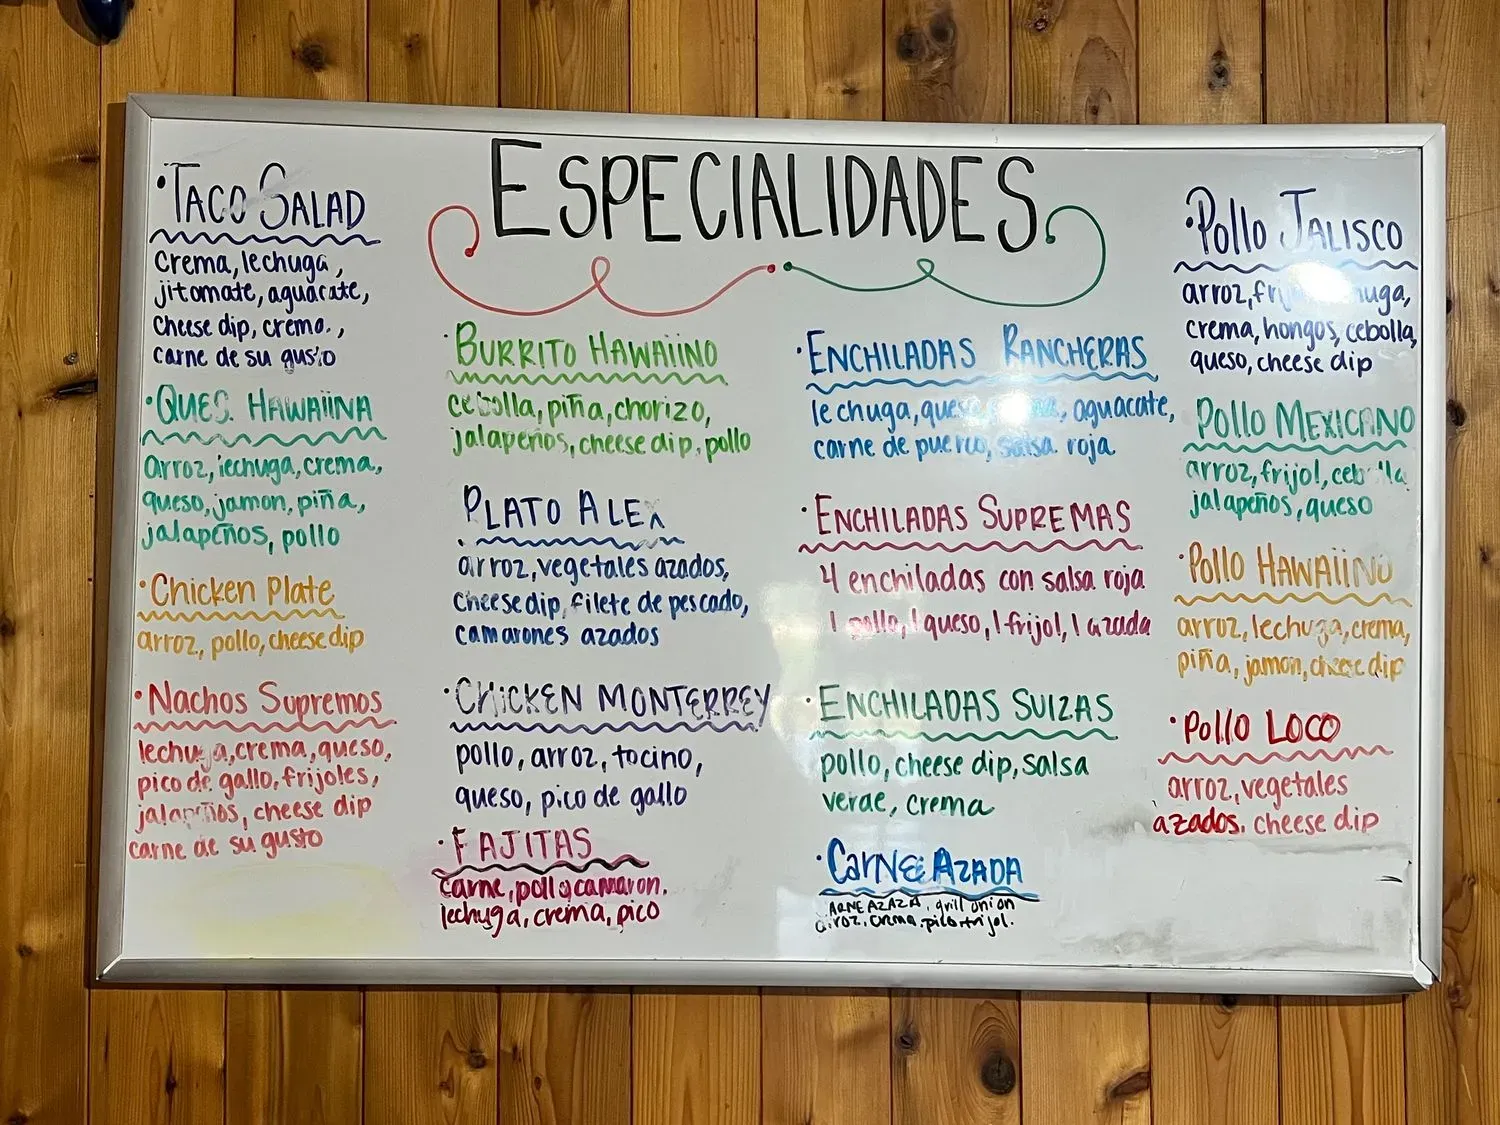 ESPECIALIDADES
• TACO SALAD
crema, lechuga,
jitomate, aguacate,
cheese dip, crema.,
carne de su gusto
• QUES. HAWAIINA
arroz, lechuga, crema,
queso, jamon, piña,
jalapeños, pollo
• Chicken Plate
arroz, pollo, cheese dip
• Nachos Supremos
lechuga, crema, queso,
pico de gallo, frijoles,
jalapeños, cheese dip
carne de su gusto
• BURRITO HAWAIINO
cebolla, piña, chorizo,
jalapeños, cheese dip, pollo
PLATO ALEX
arroz, vegetales azados,
cheese dip, filete de pescado,
camarones azados
• CHICKEN MONTERREY
pollo, arroz, tocino,
queso, pico de gallo
• FAJITAS
carne, pollo camaron.
lechuga, crema, pico
• ENCHILADAS RANCHERAS
lechuga, queso, aguacate,
carne de puerco, salsa roja
• ENCHILADAS SUPREMAS
4 enchiladas con salsa roja
1 pollo, 1 queso, 1 frijol, 1 azada
• ENCHILADAS SUIZAS
pollo, cheese dip, salsa
verde, crema
• CARNE AZADA
ARNE AZAZA, grill onion
arroz, crema, pico, frijol.
• Pollo JALISCO
arroz, lechuga,
crema, hongos, cebolla,
queso, cheese dip
Pollo MEXICANO
arroz, frijol, cebolla
jalapeños, queso
• Pollo HAWAIINO
arroz, lechuza, crema,
piña, jamon, cheese dip
• Pollo LOCO
arroz, vegetales
azados. cheese dip